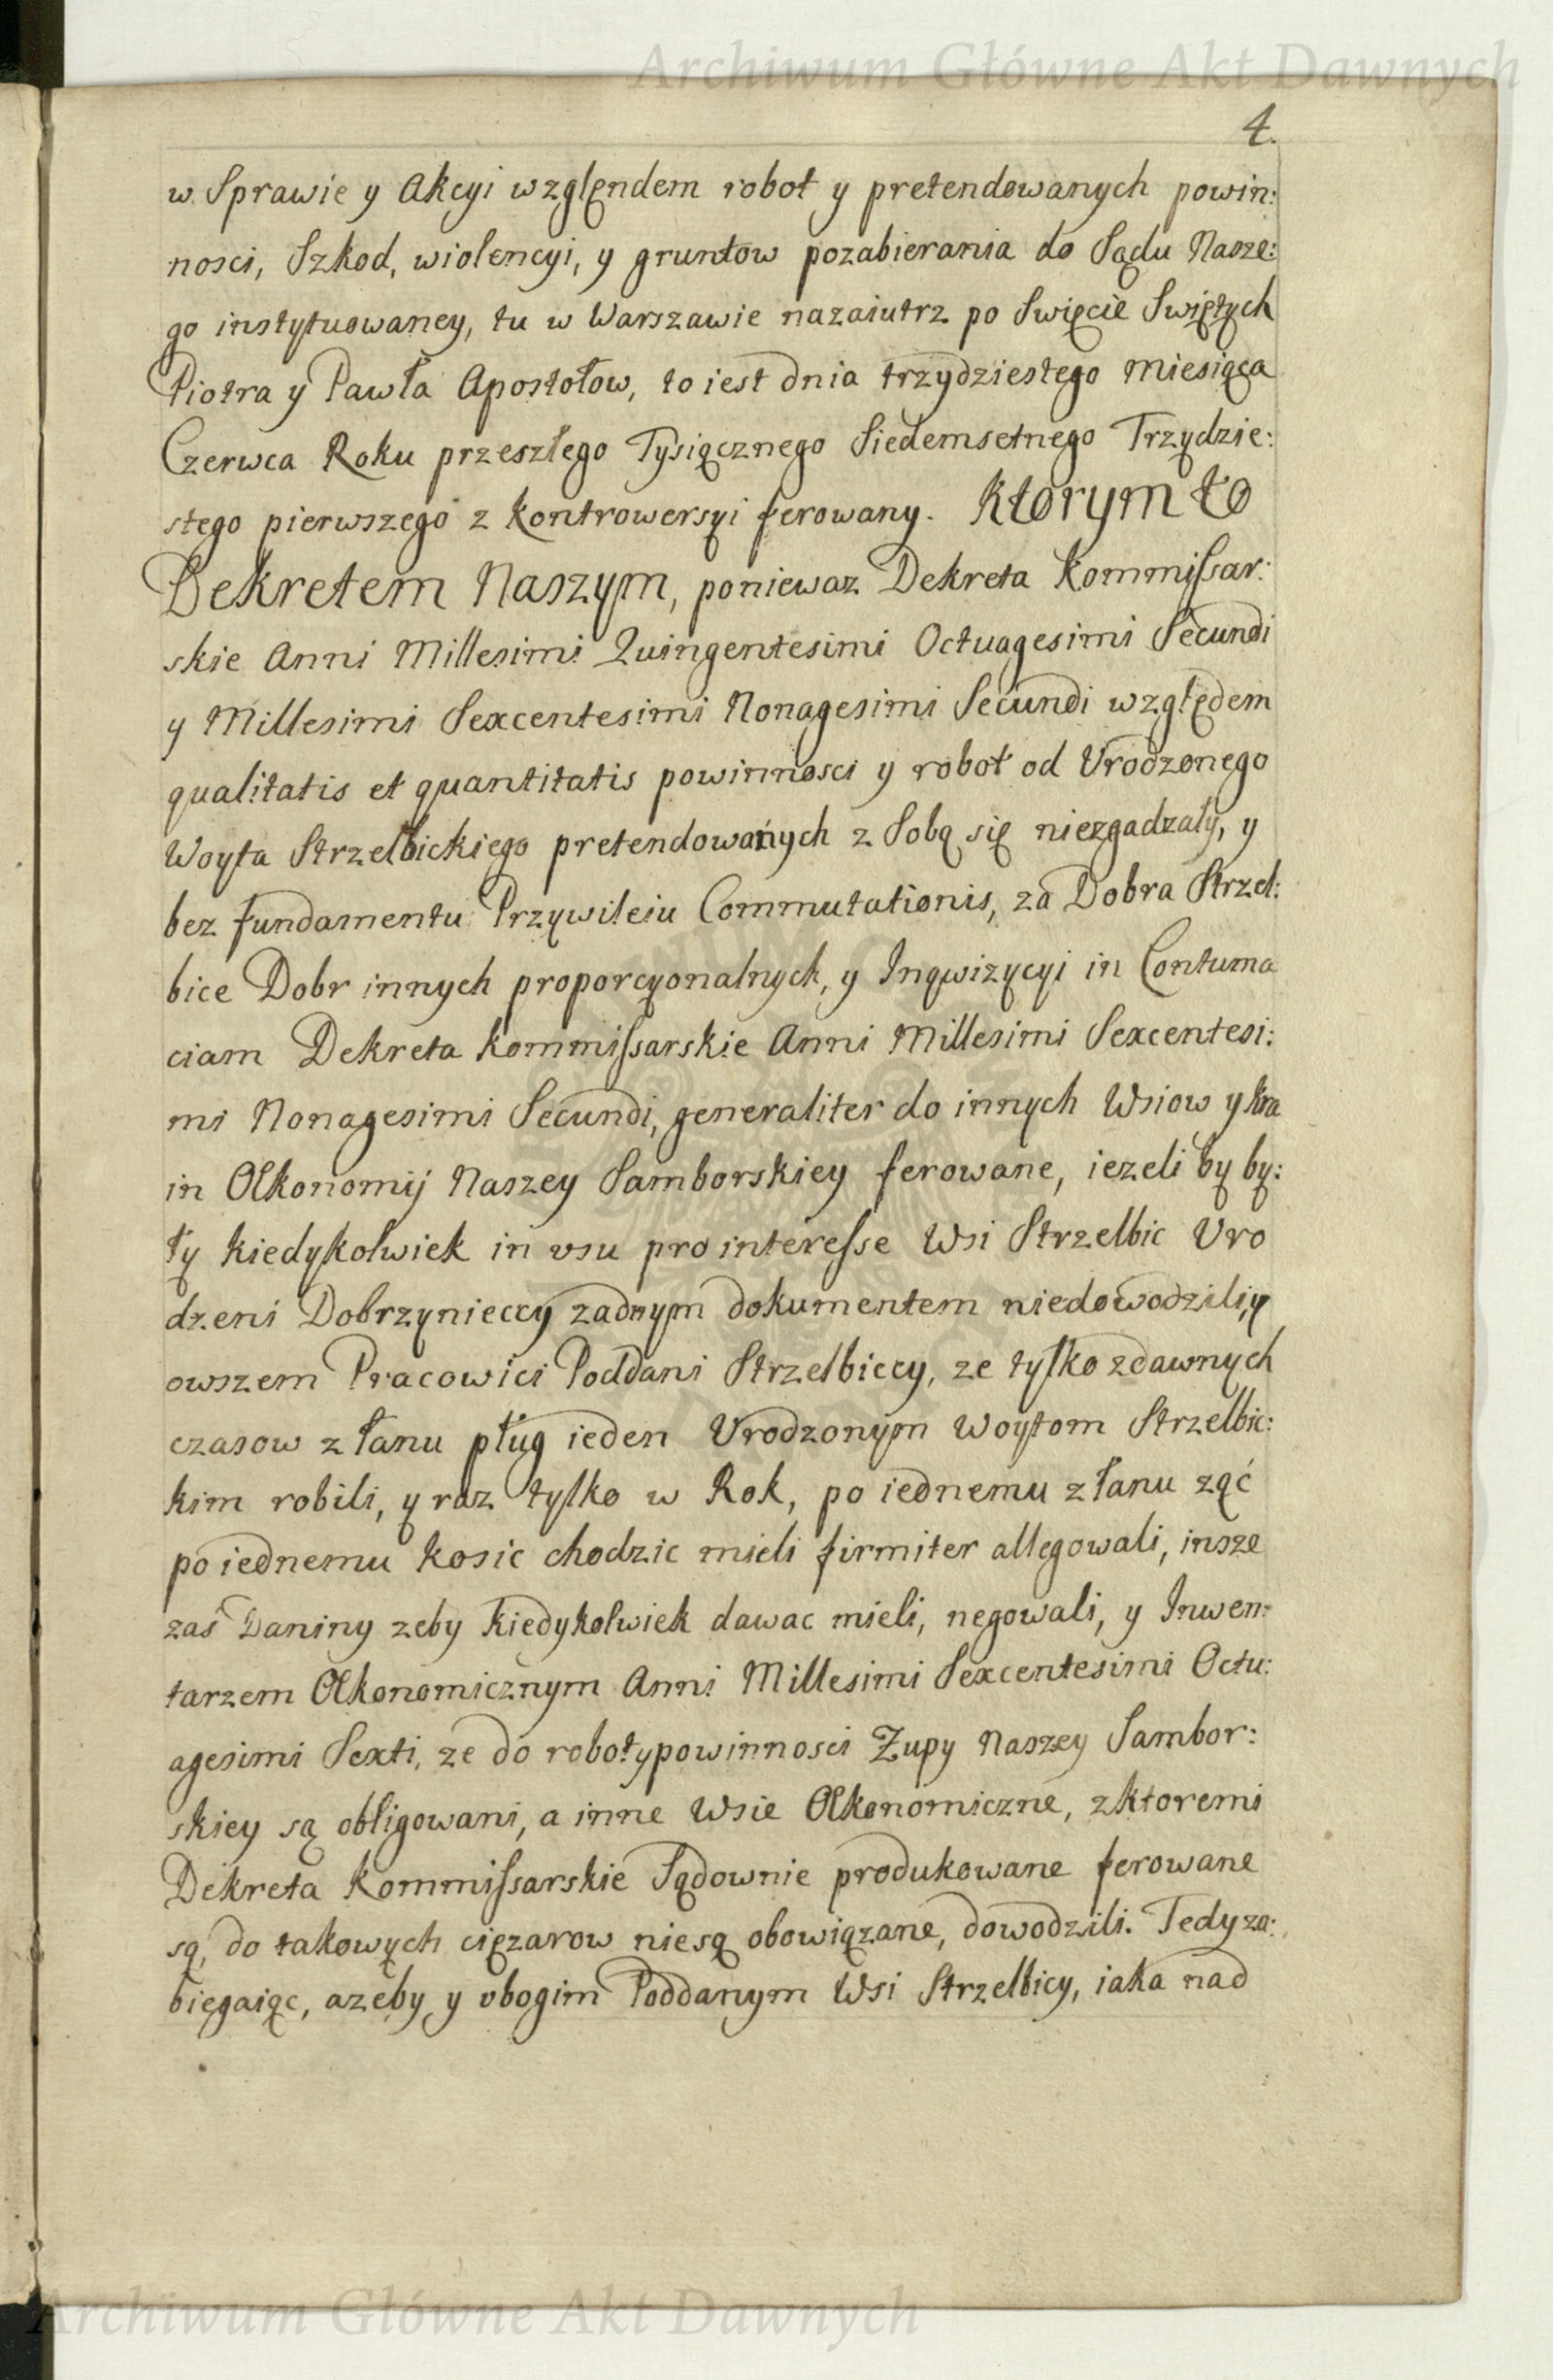 Archiwum Główne Akt Dawnych
4.
w Sprawie y Akcyi względem robot y pretendowanych powin:
nosci, Szkod, wiolencyi, y gruntow pozabierania do Sądu Nasze:
go instytuowaney, tu w Warszawie nazaiutrz po Swięcie Swiętych
Piotra y Pawła Apostołow, to iest dnia trzydziestego Miesiąca
Czerwca Roku przeszłego Tysiącznego Siedemsetnego Trzydzie:
stego pierwszego z kontrowersyi ferowany. Ktorym to
Dekretem Naszym, poniewaz Dekreta Kommissar:
skie Anni Millesimi Quingentesimi Octuagesimi Secundi
y Millesimi Sexcentesimi Nonagesimi Secundi względem
qualitatis et quantitatis powinnosci y robot od Urodzonego
Woyta Strzelbickiego pretendowanych z Sobą się niezgadzały, y
bez fundamentu Przywileiu Commutationis, za Dobra Strzel:
bice Dobr innych proporcyonalnych, y Inqwizycyi in Contuma
ciam Dekreta Kommissarskie Anni Millesimi Sexcentesi:
mi Nonagesimi Secundi, generaliter do innych Wsiow y kra
in Œkonomij Naszey Samborskiey ferowane, iezeli by by:
ły kiedykolwiek in usu pro interesse Wsi Strzelbic Uro
dzeni Dobrzynieccy zadnym dokumentem niedowodzili, y
owszem Pracowici Poddani Strzelbiccy, ze tylko zdawnych
czasow z łanu pług ieden Urodzonym Woytom Strzelbic:
kim robili, y raz tylko w Rok, po iednemu z łanu ząć
po iednemu kosic chodzic mieli firmiter allegowali, insze
zaś Daniny zeby kiedykolwiek dawac mieli, negowali, y Inwen:
tarzem Œkonomicznym Anni Millesimi Sexcentesimi Octu:
agesimi Sexti, ze do robot y powinnosci Żupy Naszey Sambor:
skiey są obligowani, a inne Wsie Œkonomiczne, z ktoremi
Dekreta Kommissarskie Sądownie produkowane ferowane
są, do takowych cięzarow niesą obowiązane, dowodzili. Tedy za:
biegaiąc, azeby y ubogim Poddanym Wsi Strzelbicy, iaka nad
Archiwum Główne Akt Dawnych